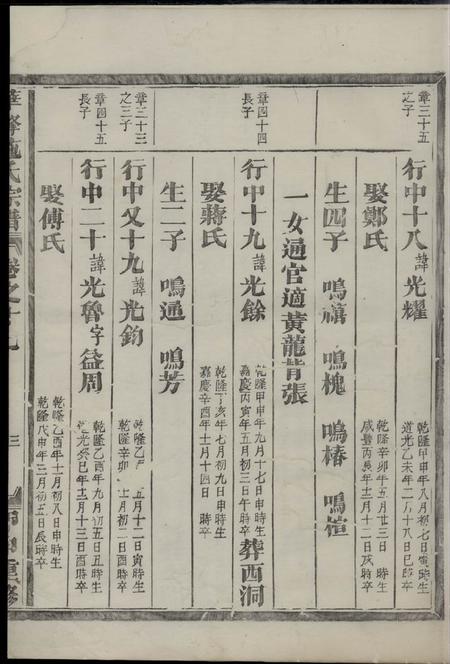 章三十五
之子
行中十八諱光耀
乾隆甲申年八月初七日寅時生
道光乙未年二月十八日巳時卒
娶鄭氏
乾隆辛卯年五月廿三日 時生
咸豐丙辰年十二月十二日辰時卒
生四子 鳴禧 鳴槐 鳴椿 鳴楦
一女適官適黃龍背張
章四十四
長子
行中十九諱光餘
乾隆甲申年九月十七日申時生
嘉慶丙寅年五月初三日午時卒
葬西洞
娶蔣氏
乾隆丁亥年七月初九日申時生
嘉慶辛酉年十月十四日 時卒
生二子 鳴通 鳴芳
章三十三
之三子
行中又十九諱光鈞
乾隆乙 五月十二日寅時生
乾隆辛卯 月初二日酉時卒
章四十五
長子
行中二十諱光魯字益周
乾隆乙酉年九月初五日丑時生
道光癸巳年十二月十三日酉時卒
娶傅氏
乾隆乙酉年十一月初八日申時生
乾隆戊申年三月初五日辰時卒
施氏宗譜
卷之十九
三
重修